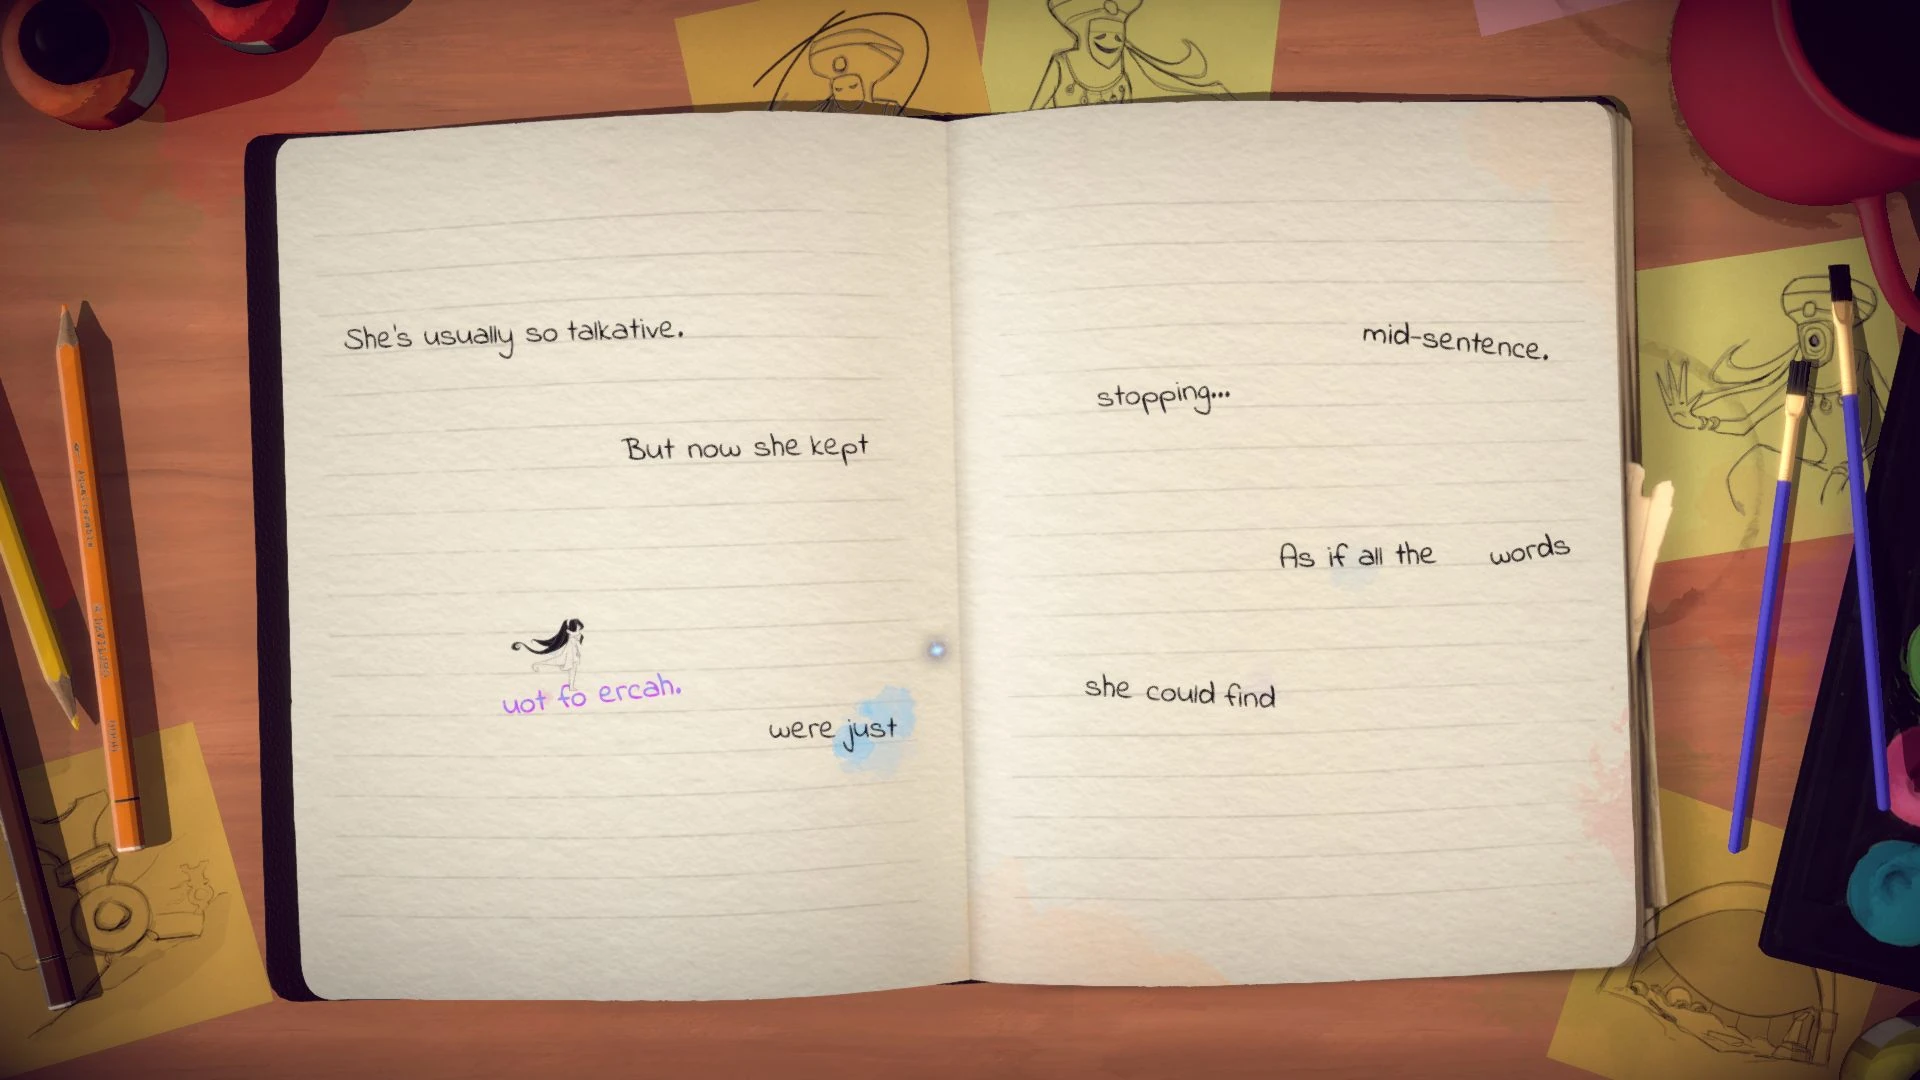 She's usually so talkative.
But now she kept
uot fo ercah.
were just
mid-sentence.
stopping...
As if all the words
she could find